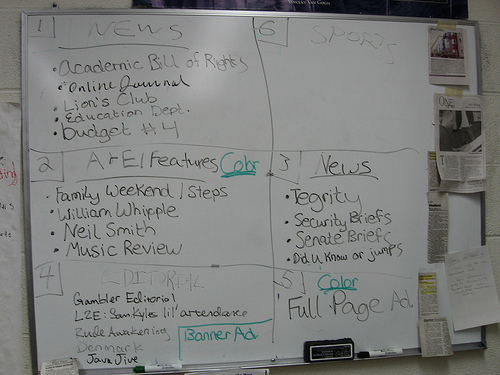 1 NEWS
• Academic Bill of Rights
• Online Journal
• Lion's Club
• Education Dept.
• Budget #4
6 SPORTS
2 A&E/Features Color
• Family Weekend / Steps
• William Whipple
• Neil Smith
• Music Review
3 News
• Tegrity
• Security Briefs
• Senate Briefs
• Did U Know or jumps
4 EDITORIAL
Gambler Editorial
L2E: Sam Kyles lil' attendance
Rude Awakening
Denmark
Java Jive
Banner Ad
5 Color
Full Page Ad
ONE